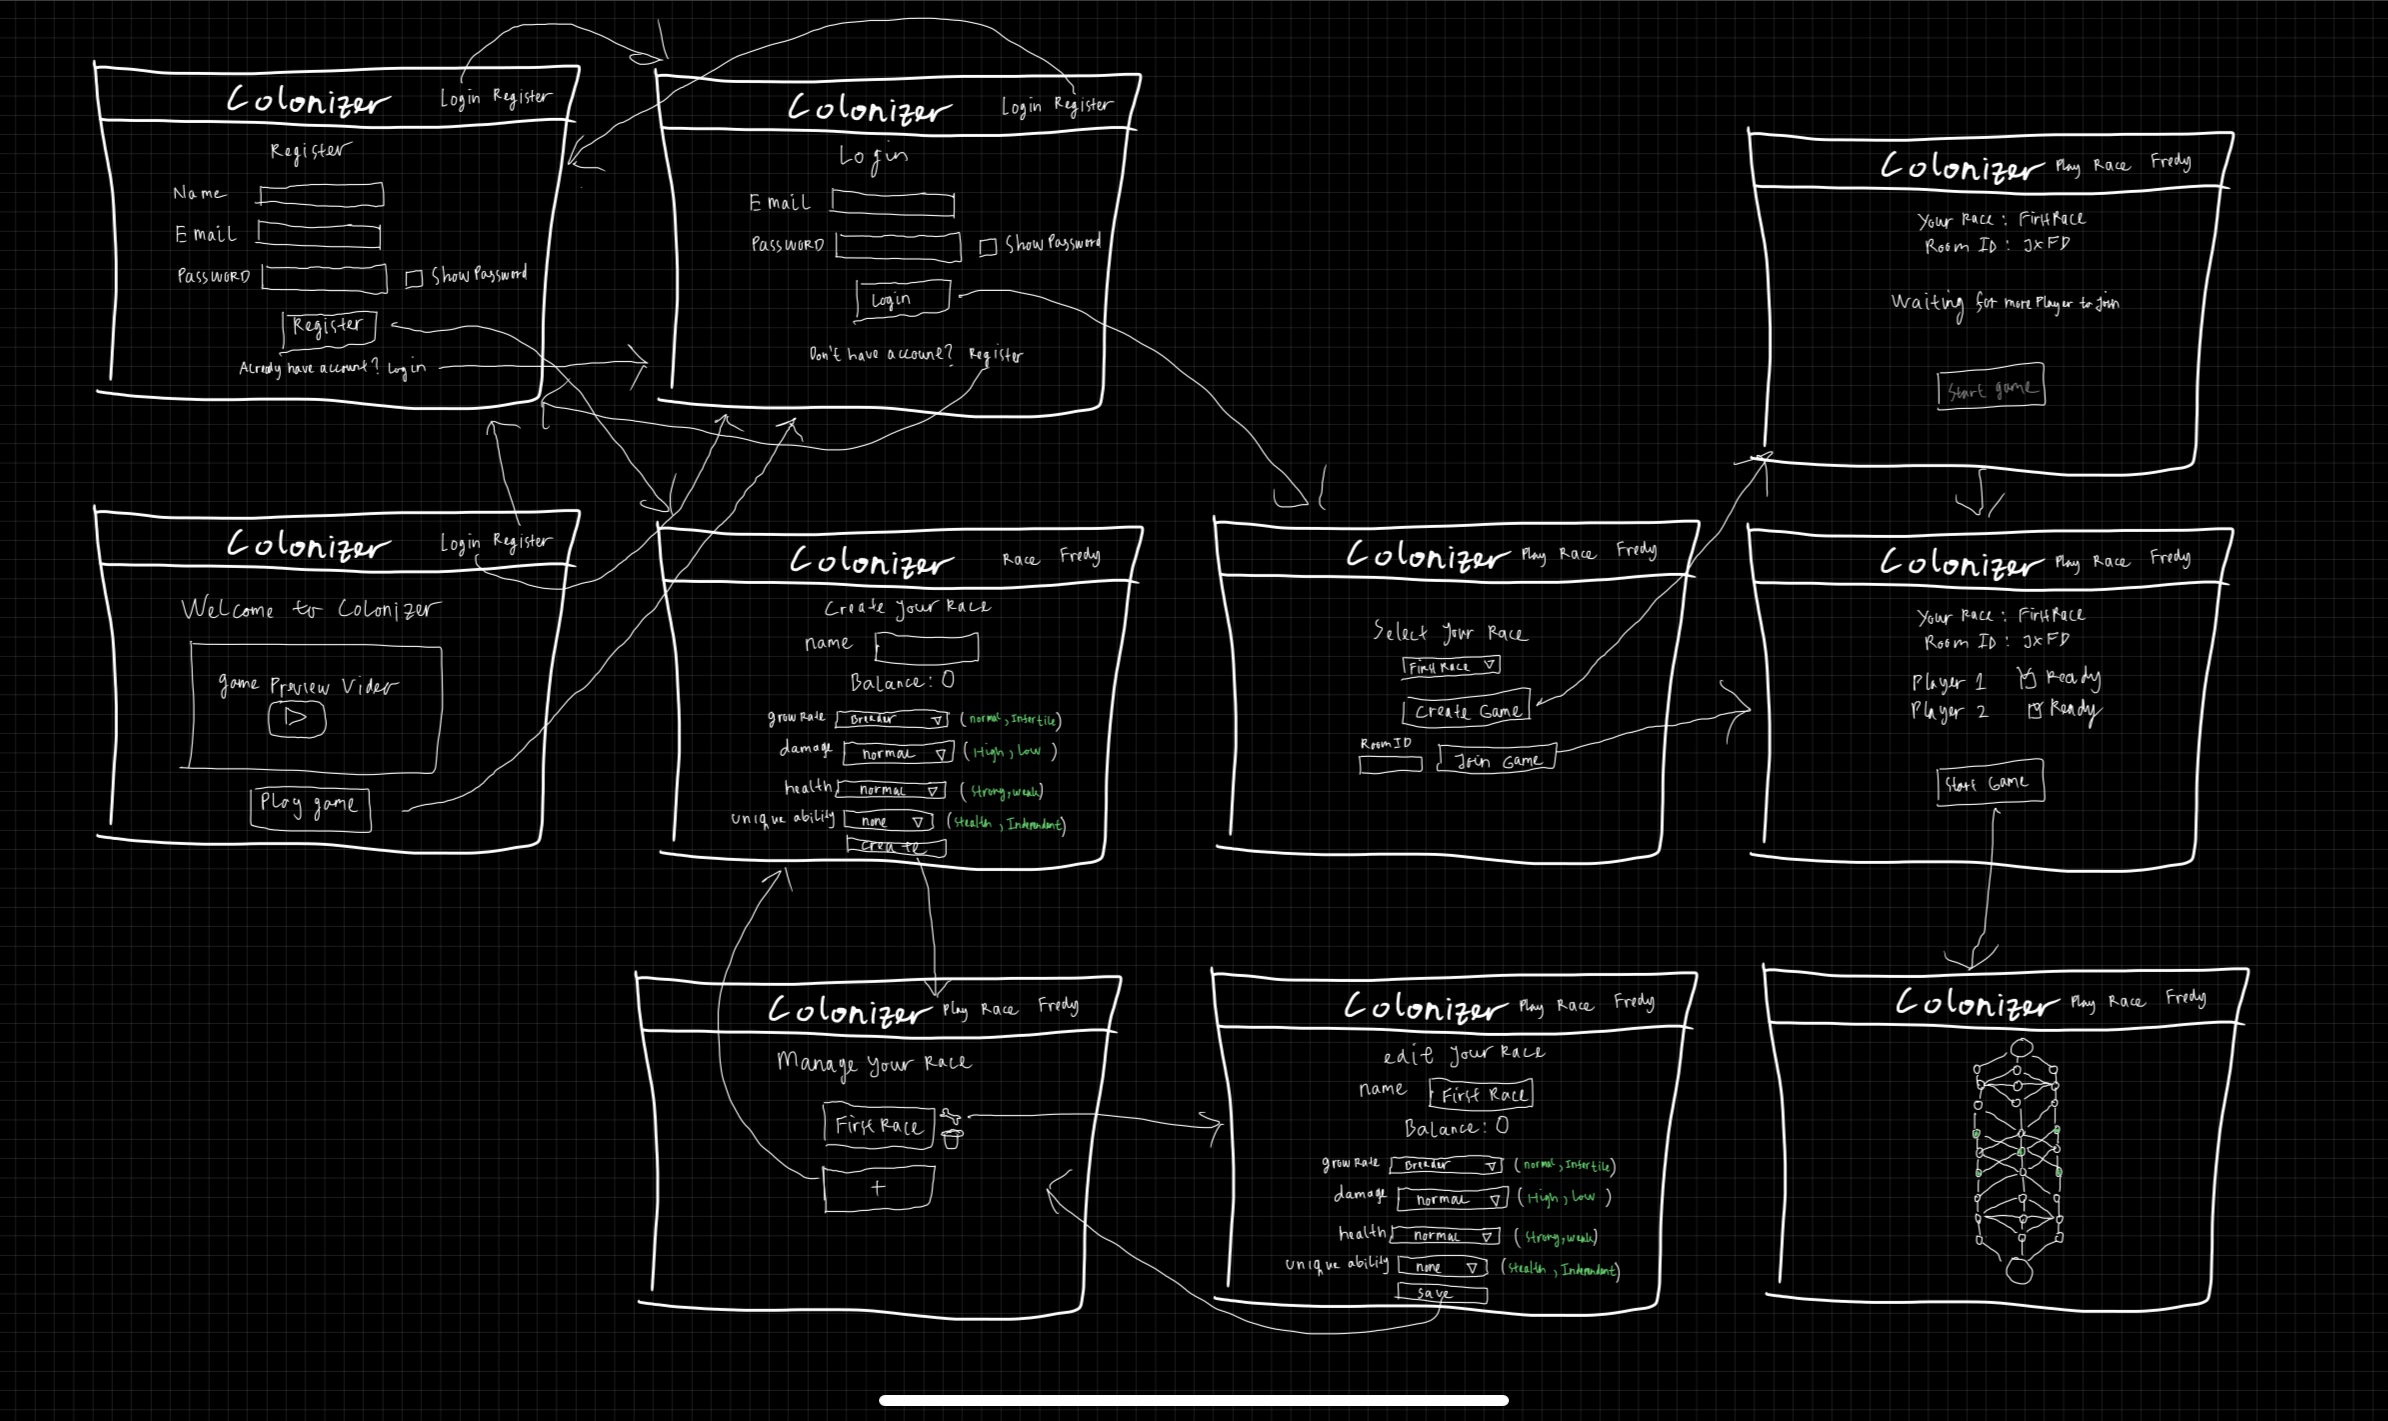 Colonizer Login Register
Register
Name
Email
Password Show Password
Register
Already have account? Login
Colonizer Login Register
Login
Email
Password Show Password
Login
Don't have account? Register
Colonizer Play Race Fredy
Your Race : First Race
Room ID : JxFD
Waiting for more Player to Join
Start game
Colonizer Login Register
Welcome to Colonizer
game Preview Video
Play game
Colonizer Race Fredy
Create Your Race
name
Balance: 0
grow Rate Breeder (normal, Infertile)
damage normal (High, low)
health normal (Strong, weak)
unique ability none (Stealth, Independent)
Create
Colonizer Play Race Fredy
Select Your Race
First Race
Create Game
Room ID
Join Game
Colonizer Play Race Fredy
Your Race : First Race
Room ID : JxFD
Player 1 Ready
Player 2 Ready
Start Game
Colonizer Play Race Fredy
Manage Your Race
First Race
+
Colonizer Play Race Fredy
edit Your Race
name First Race
Balance: 0
grow Rate Breeder (normal, Infertile)
damage normal (High, low)
health normal (Strong, weak)
unique ability none (Stealth, Independent)
Save
Colonizer Play Race Fredy